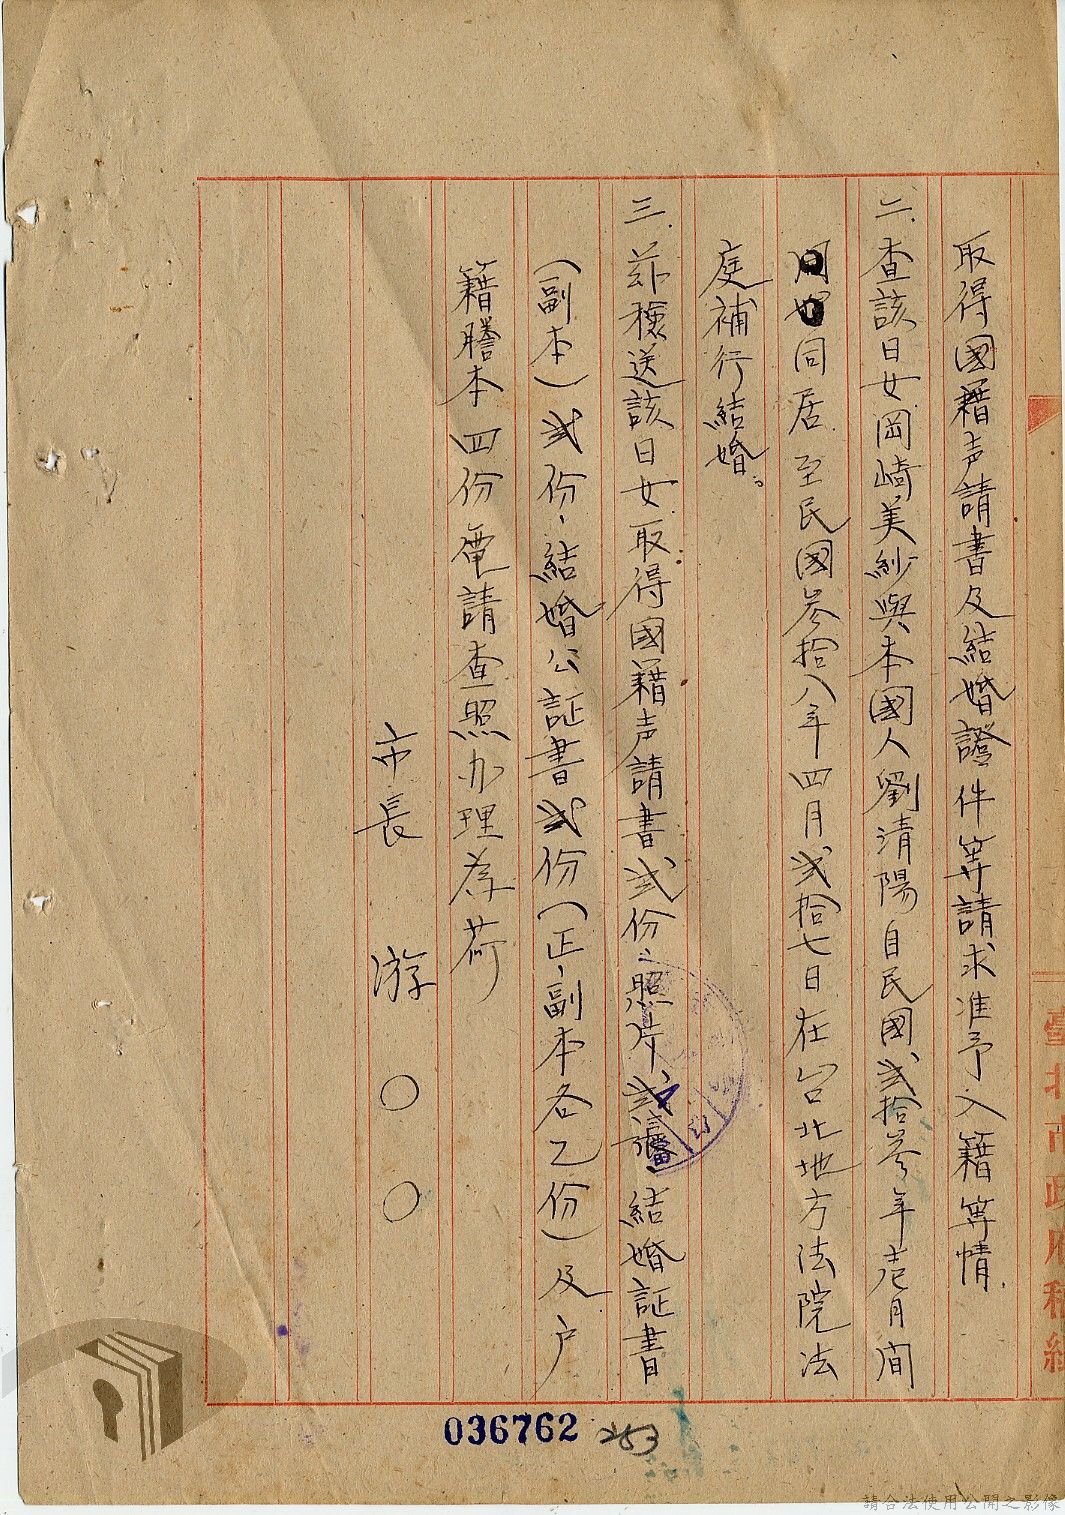 取得國籍声請書及結婚證件等請求准予入籍等情.
二.查該日女岡崎美紗與本國人劉清陽自民國貳拾叁年壱月間
同居.至民國叁拾八年四月貳拾七日在台北地方法院法
庭補行結婚。
三.茲檢送該日女取得國籍声請書貳份、照片貳張、結婚証書
(副本)貳份、結婚公証書貳份(正、副本各乙份)及户
籍謄本四份電請查照办理為荷
市長 游 ○ ○
臺北市政府稿紙
036762
253
請合法使用公開之影像